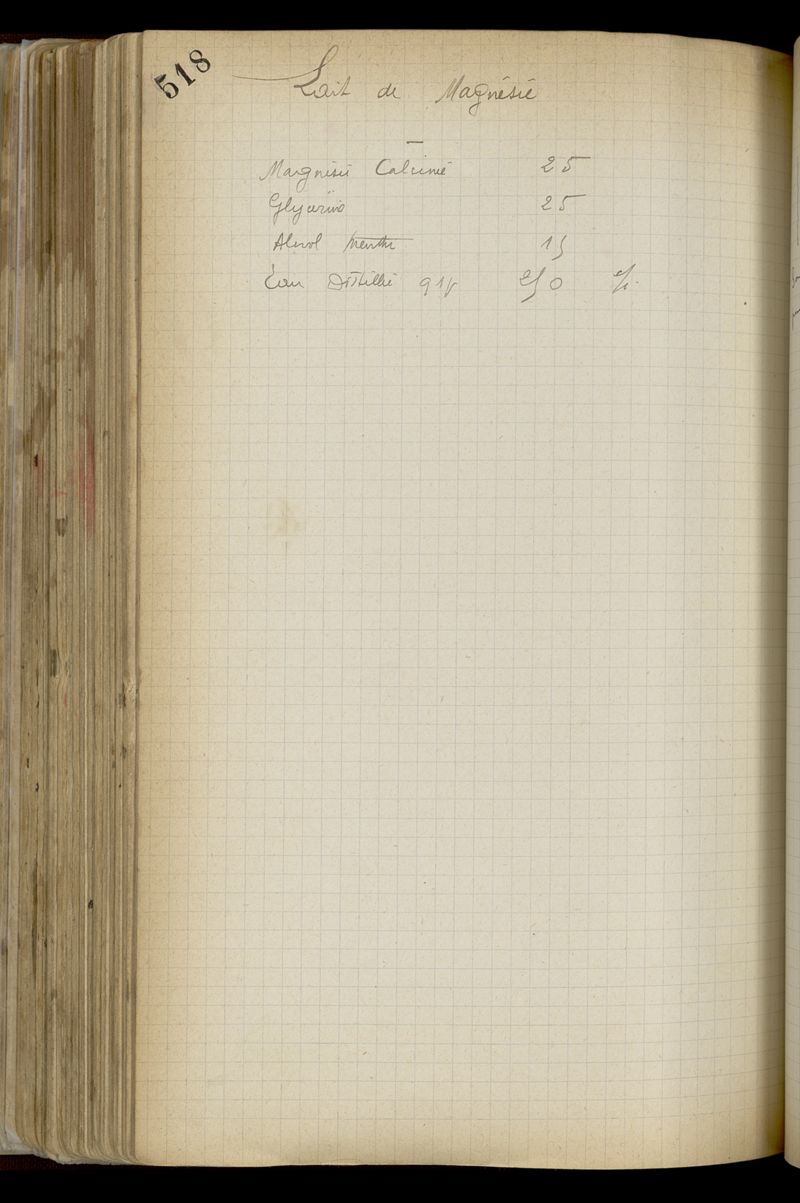 518
Lait de Magnésie
Magnésie Calcinée 25
Glycérine 25
Alcool Menthe 15
Eau Distillée q s p 250